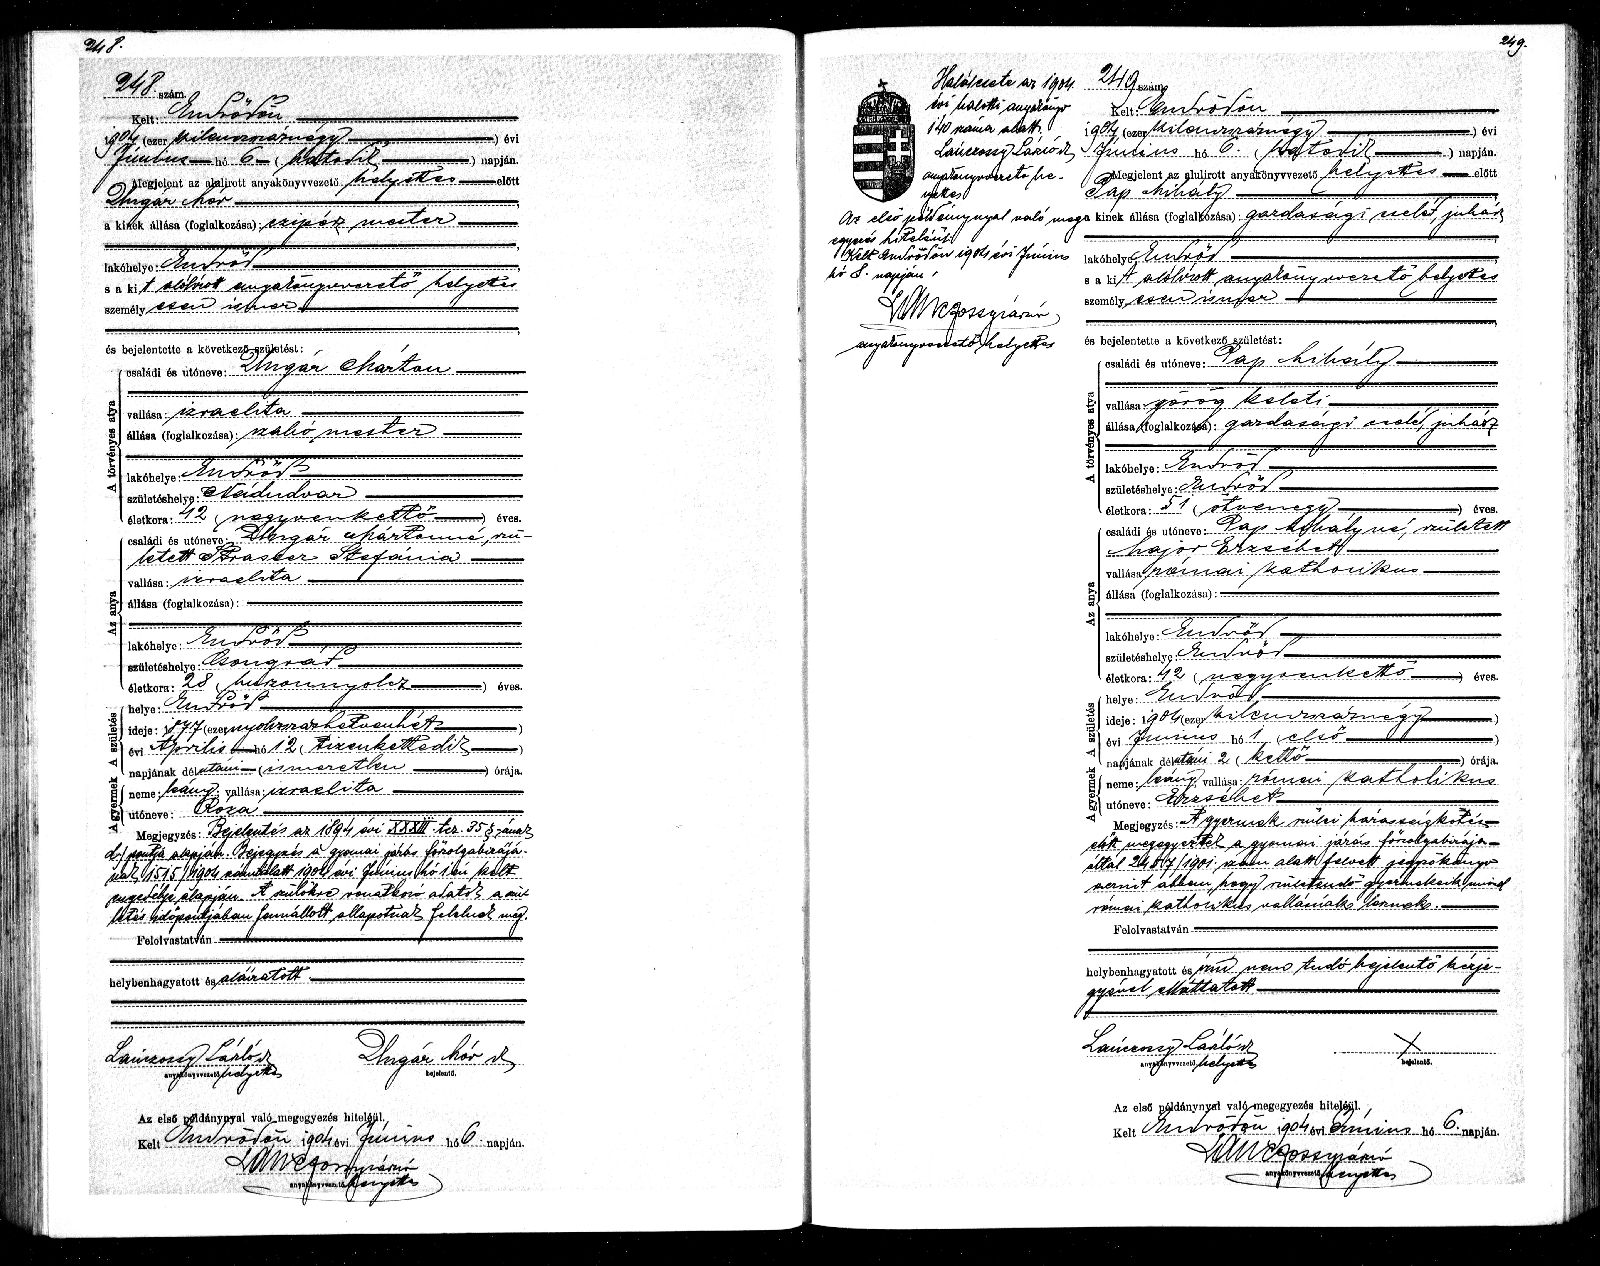 248.
248 szám.
Kelt: Endrődön
1904 (ezer kilenczszáznégy) évi
Június hó 6 (hatodik) napján.
Megjelent az alulirott anyakönyvvezető helyettes előtt
Ungár Mór
a kinek állása (foglalkozása): czipész mester
lakóhelye: Endrőd
s a kit alólírott anyakönyvvezető helyettes
személyesen ismer
és bejelentette a következő születést:
A törvényes atya
családi és utóneve: Ungár Márton
vallása: izraelita
állása (foglalkozása): szabó mester
lakóhelye: Endrőd
születéshelye: Nádudvar
életkora: 42 (negyvenkettő) éves.
Az anya
családi és utóneve: Ungár Mártonné, szü-
letett Strasser Stefánia
vallása: izraelita
állása (foglalkozása):
lakóhelye: Endrőd
születéshelye: Csongrád
életkora: 28 (huszonnyolcz) éves.
A születés
helye: Endrőd
ideje: 1877 (ezer nyolczszázhetvenhét)
évi Április hó 12 (tizenkettedik)
napjának délutáni (ismeretlen) órája.
A gyermek
neme: leány; vallása: izraelita
utóneve: Róza
Megjegyzés: Bejelentés az 1894 évi XXXIII tcz. 35 § ának
d) pontja alapján. Bejegyzés a gyomai járás főszolgabirájá-
nak 1515/1904 szám alatt 1904 évi Június hó 1 én kelt
engedélye alapján. A szülőkre vonatkozó adatok a szü-
letés időpontjában fennállott állapotnak felelnek meg.
Felolvastatván
helybenhagyatott és aláiratott
Lánczossy László
anyakönyvvezető helyettes
Ungár Mór
bejelentő.
Az első példánynyal való megegyezés hiteléül.
Kelt Endrődön 1904 évi Június hó 6. napján.
anyakönyvvezető helyettes
249.
Haláleseте az 1904.
évi halotti anyakönyv
140 száma alatt.
Lánczossy László
anyakönyvvezető he-
lyettes
Az első példánynyal való meg-
egyezés hiteléül.
Kelt Endrődön 1904 évi Június
hó 8. napján.
anyakönyvvezető helyettes
249 szám.
Kelt: Endrődön
1904 (ezer kilenczszáznégy) évi
Június hó 6. (hatodik) napján.
Megjelent az alulirott anyakönyvvezető helyettes előtt
Pap Mihály
a kinek állása (foglalkozása): gazdasági cseléd, juhász
lakóhelye: Endrőd
s a kit alólírott anyakönyvvezető helyettes
személyesen ismer
és bejelentette a következő születést:
A törvényes atya
családi és utóneve: Pap Mihály
vallása: görög keleti
állása (foglalkozása): gazdasági cseléd, juhász
lakóhelye: Endrőd
születéshelye: Endrőd
életkora: 51 (ötvenegy) éves.
Az anya
családi és utóneve: Pap Mihályné, született
Major Erzsébet
vallása: római katholikus
állása (foglalkozása):
lakóhelye: Endrőd
születéshelye: Endrőd
életkora: 42 (negyvenkettő) éves.
A születés
helye: Endrőd
ideje: 1904 (ezer kilenczszáznégy)
évi Június hó 1 (első)
napjának délutáni 2 (kettő) órája.
A gyermek
neme: leány; vallása: római katholikus
utóneve: Erzsébet
Megjegyzés: A gyermek szülei házasságkötés
előtt megegyeztek a gyomai járás főszolgabirája
által 2457/1901 szám alatt felvett jegyzőkönyv
szerint abban, hogy születendő gyermekeik mind
római katholikus vallásuak lesznek.
Felolvastatván
helybenhagyatott és írni nem tudó bejelentő kézje-
gyével elláttatott
Lánczossy László
anyakönyvvezető helyettes
X
bejelentő.
Az első példánynyal való megegyezés hiteléül.
Kelt Endrődön 1904 évi Június hó 6. napján.
anyakönyvvezető helyettes